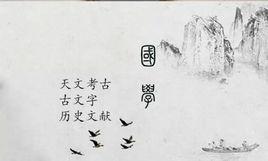 國學
天文考古
古文字
历史文献